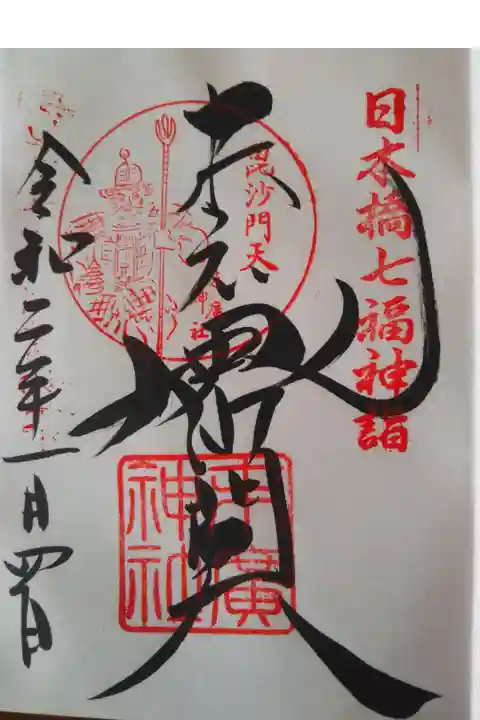 日本橋七福神詣
毘沙門天
末廣神社
毘沙門天
末廣神社
令和二年一月四日